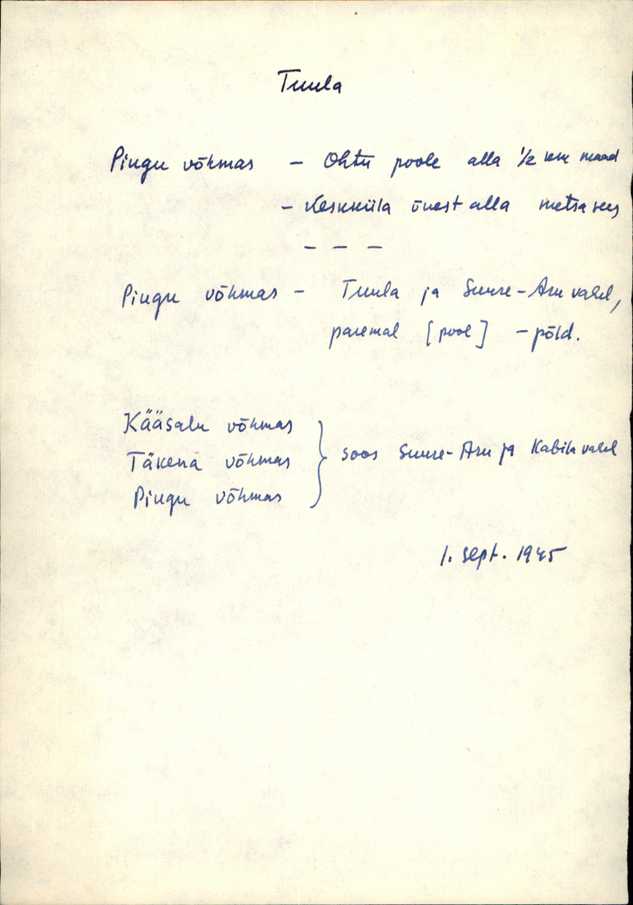 Tuula
Pingu võhmas – Ohtu poole alla ½ km maad
– Keskküla õuest alla metsa sees
– – –
Pingu võhmas – Tuula ja Suure-Aru vahel,
paremal [pool] – põld.
Kääsalu võhmas
Täkenä võhmas } soos Suure-Aru ja Kabila vahel
Pingu võhmas
1. sept. 1945